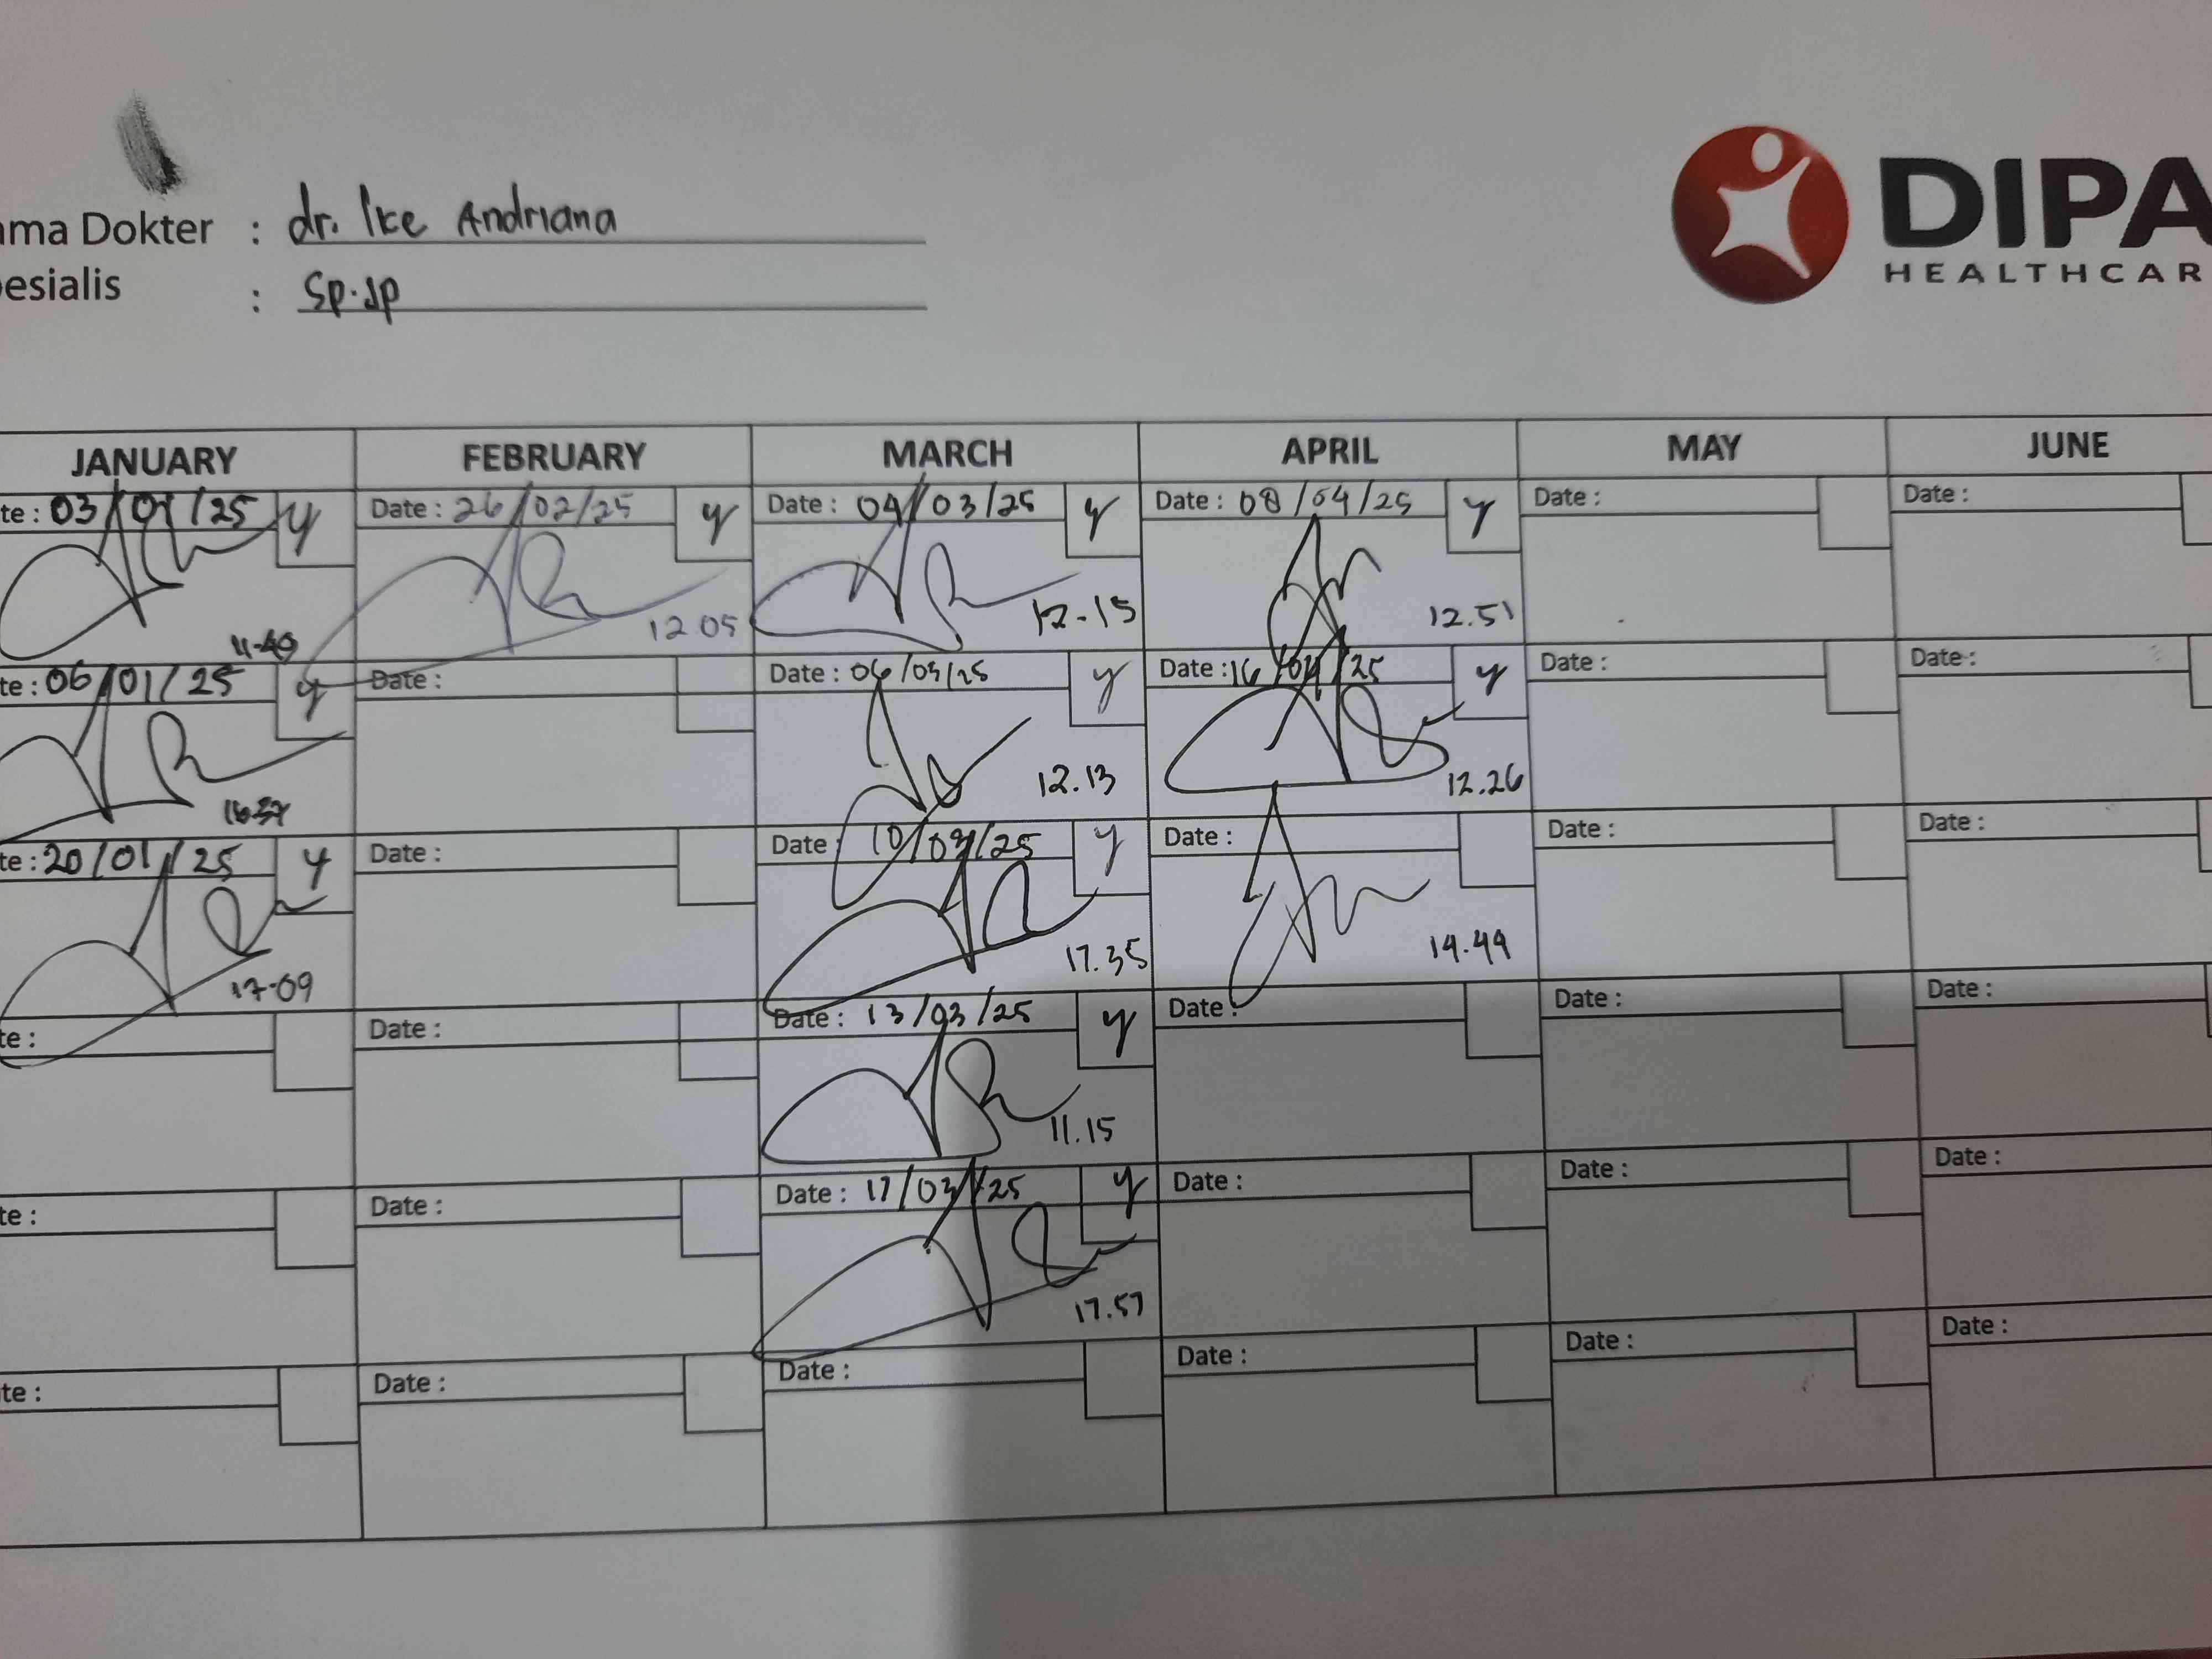 ama Dokter : dr. Ike Andriana
esialis : Sp.Jp
DIPA
HEALTHCAR
JANUARY FEBRUARY MARCH APRIL MAY JUNE
te : 03/01/25 y Date : 26/02/25 y Date : 04/03/25 y Date : 08/04/25 y Date : Date :
12 05 12-15 12.51
te : 06/01/25 y Date : Date : 06/03/25 y Date : 16/04/25 y Date : Date :
12.13 12.26
te : 20/01/25 y Date : Date : 10/03/25 y Date : Date : Date :
17-09 17.35 14.49
te : Date : Date : 13/03/25 y Date : Date : Date :
11.15
te : Date : Date : 17/03/25 y Date : Date : Date :
17.57
te : Date : Date : Date : Date : Date :